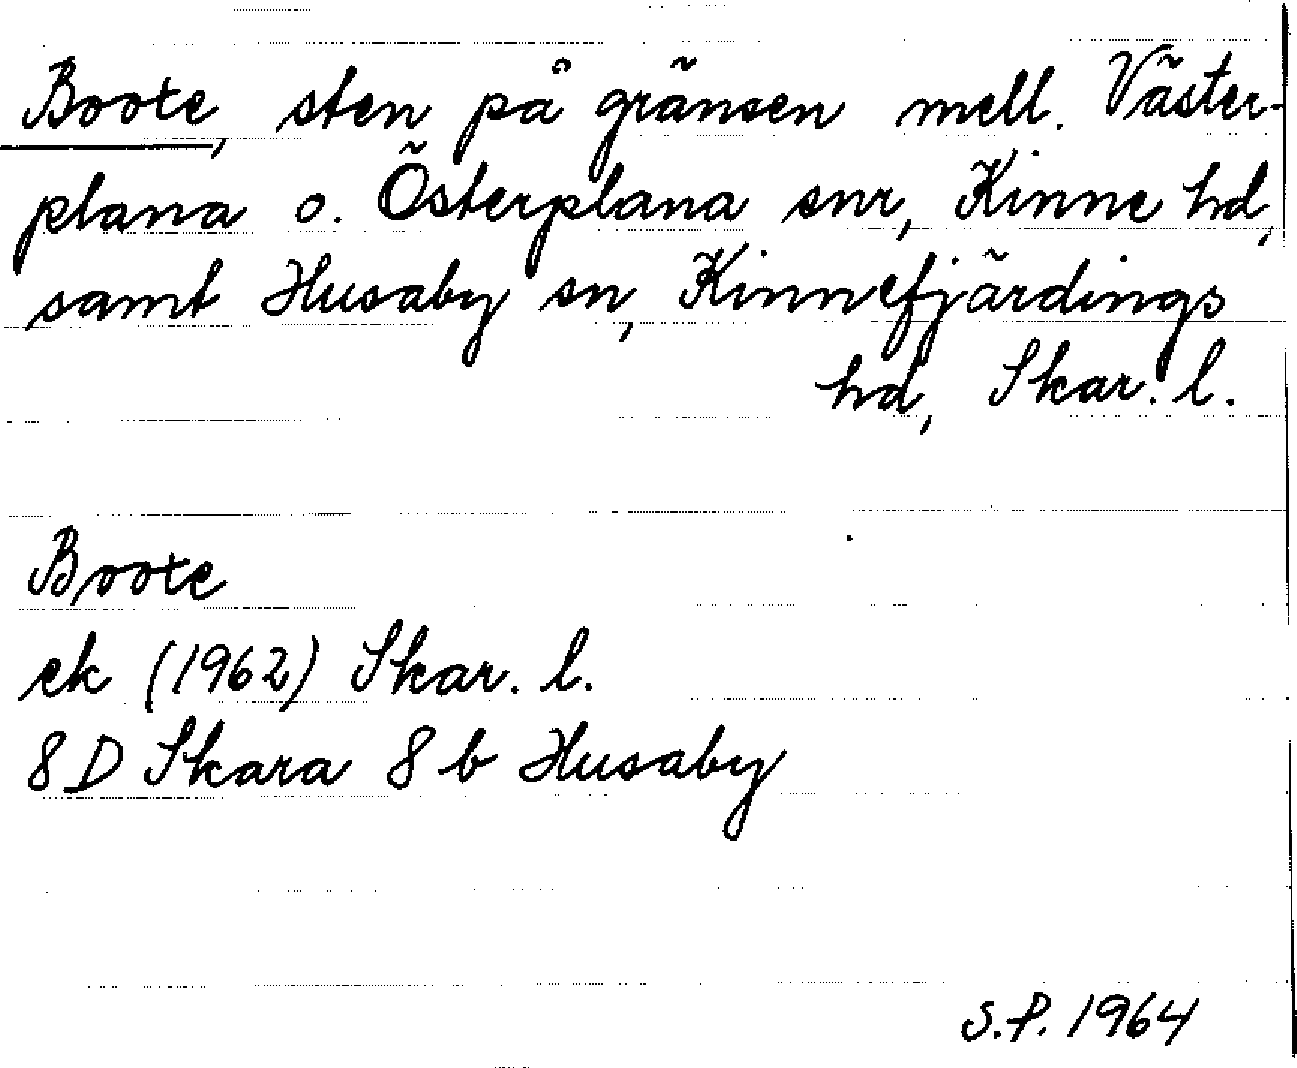 Boote, sten på gränsen mell. Väster-
plana o. Österplana snr, Kinne hd,
samt Husaby sn, Kinnefjärdings
hd, Skar. l.
Boote
ek (1962) Skar. l.
8 D Skara 8 b Husaby
S.P. 1964